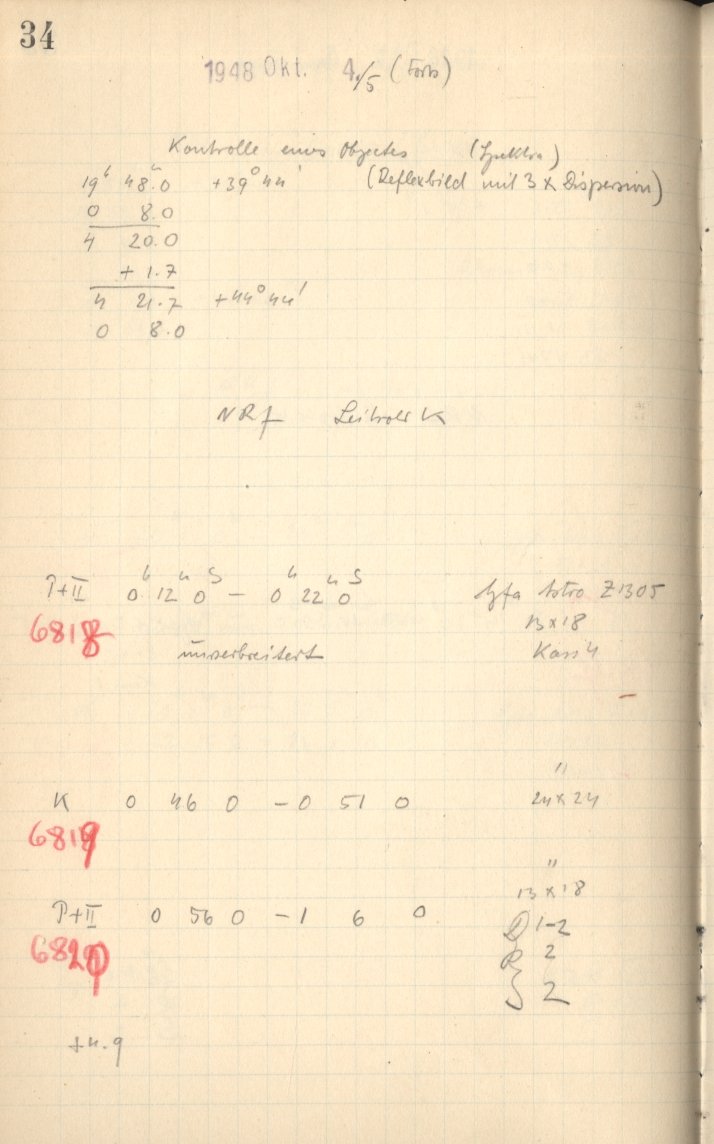 34
1948 Okt. 4./5 (Forts)
Kontrolle eines Objectes (Spektra)
19h 48.0m +39° 44' (Reflexbild mit 3 x Dispersion)
0 8.0
4 20.0
+ 1.7
4 21.7 +44° 44'
0 8.0
NRf Leitrohr K
P+II 0h 12m 0s – 0h 22m 0s Agfa Astro Z1305
6818 13x18
unverbreitert Kass 4
"
K 0 46 0 – 0 51 0 24x24
6819
"
13x18
P+II 0 56 0 – 1 6 0
D 1-2
6820 R 2
S 2
+4.9